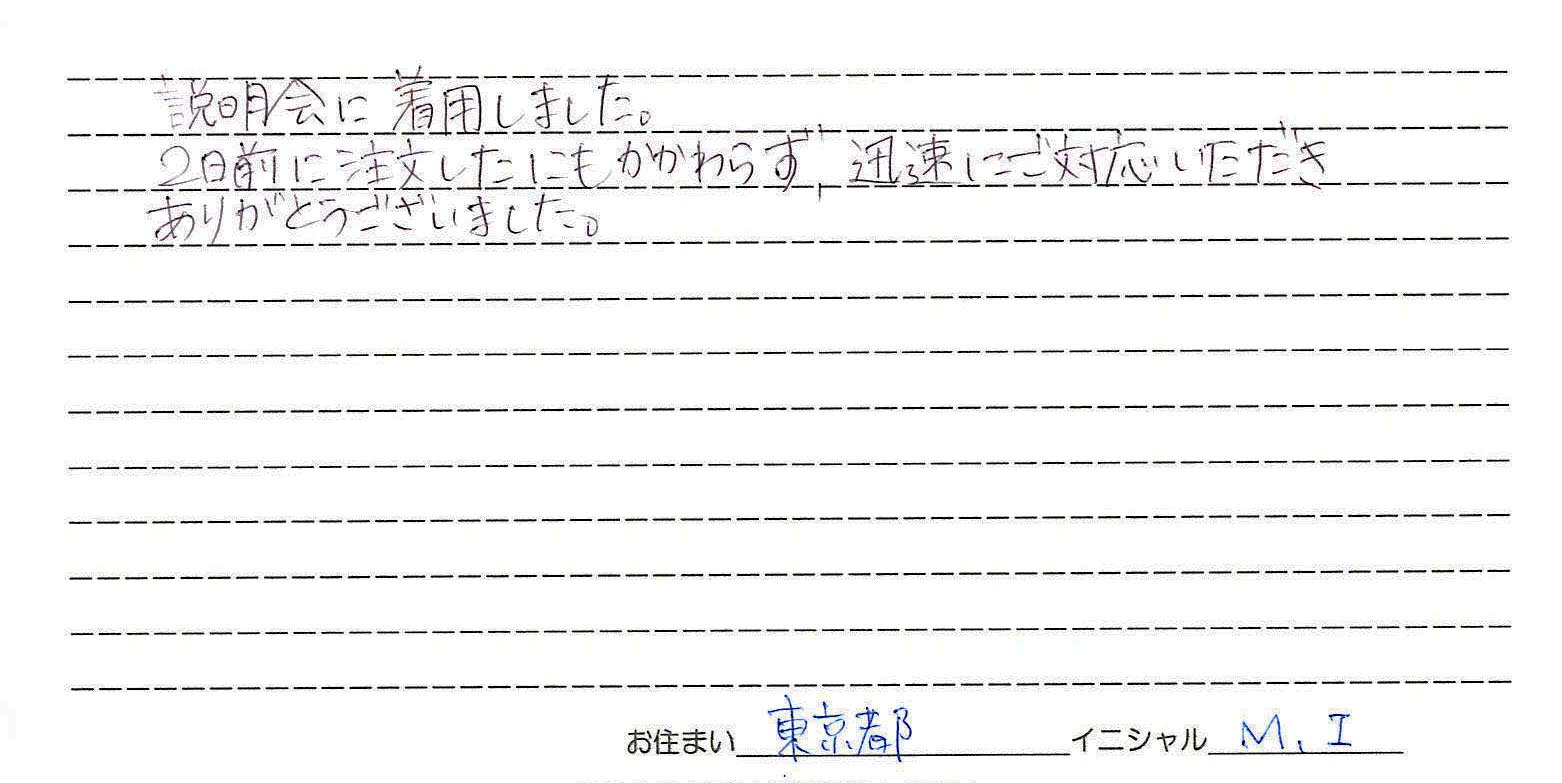 説明会に着用しました。
2日前に注文したにもかかわらず,迅速にご対応いただき
ありがとうございました。
お住まい 東京都 イニシャル M. I